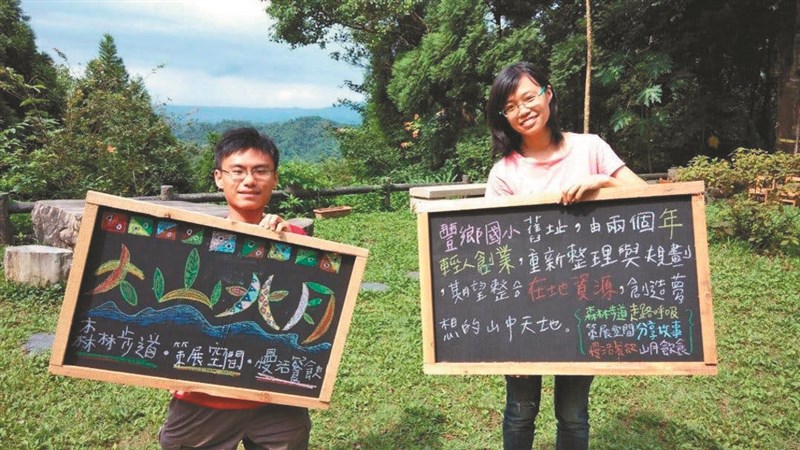 森林步道・策展空間・慢活餐飲
豐鄉國小舊址，由兩個年
輕人創業，重新整理與規劃
，期望整合在地資源，創造夢
想的山中天地。
森林步道 走路呼吸
策展空間 分享故事
慢活餐飲 山月飲食